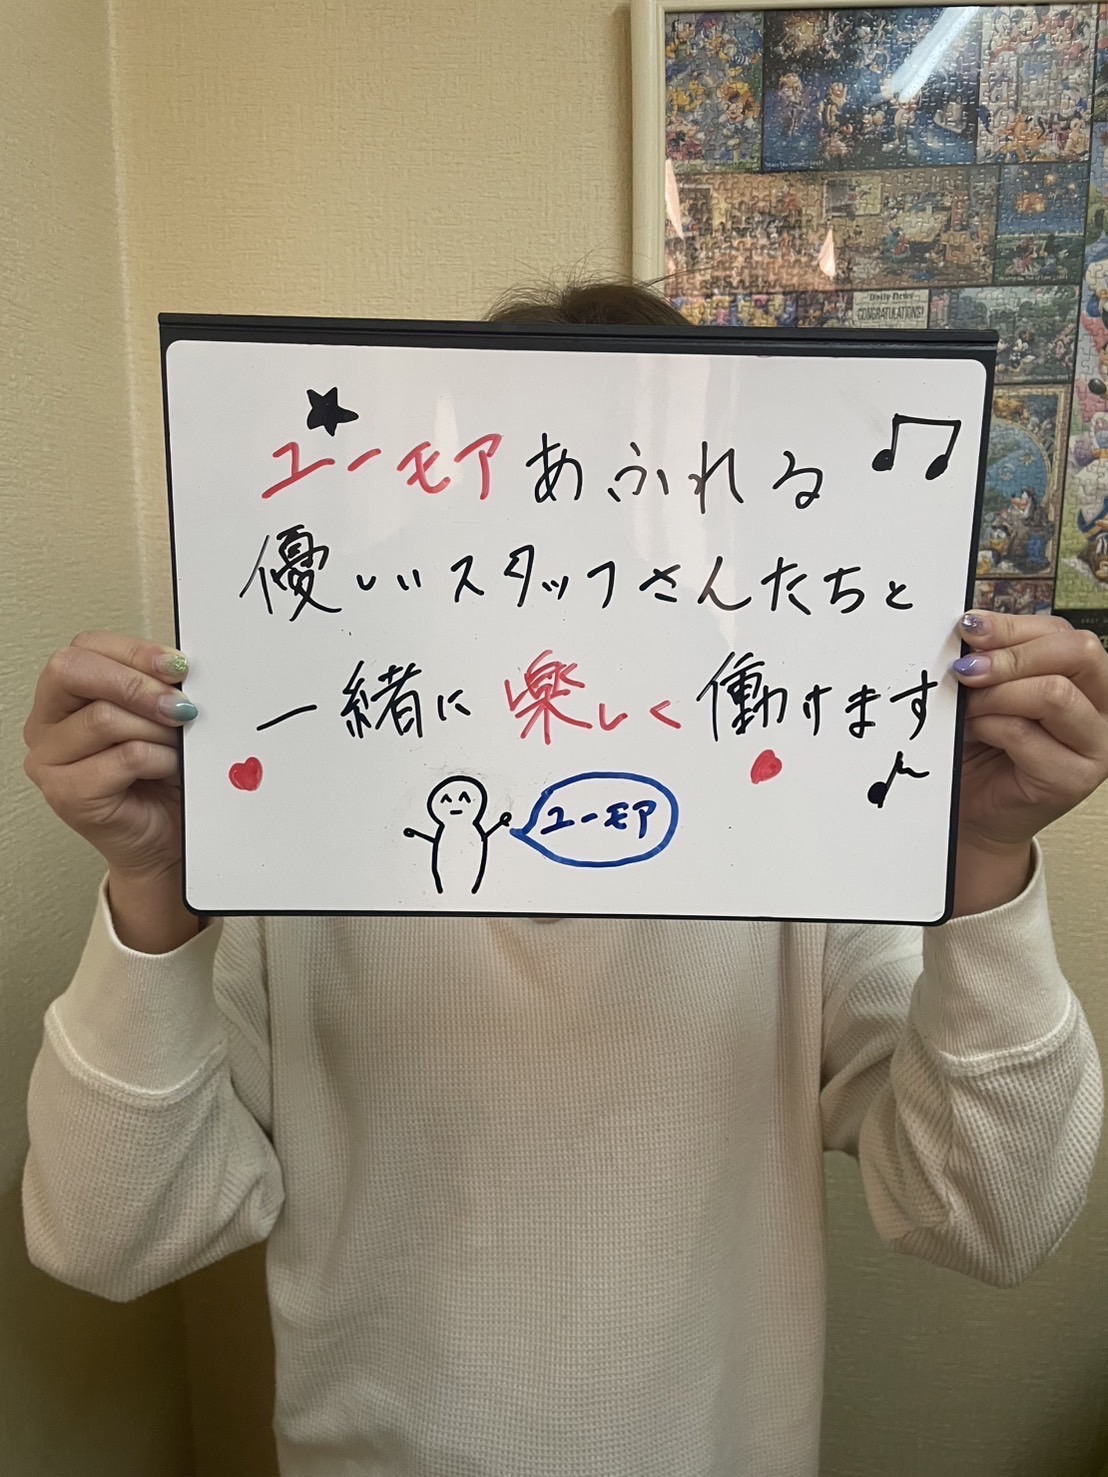 ユーモアあふれる
優しいスタッフさんたちと
一緒に楽しく働けます
ユーモア
Daily News
CONGRATULATIONS!